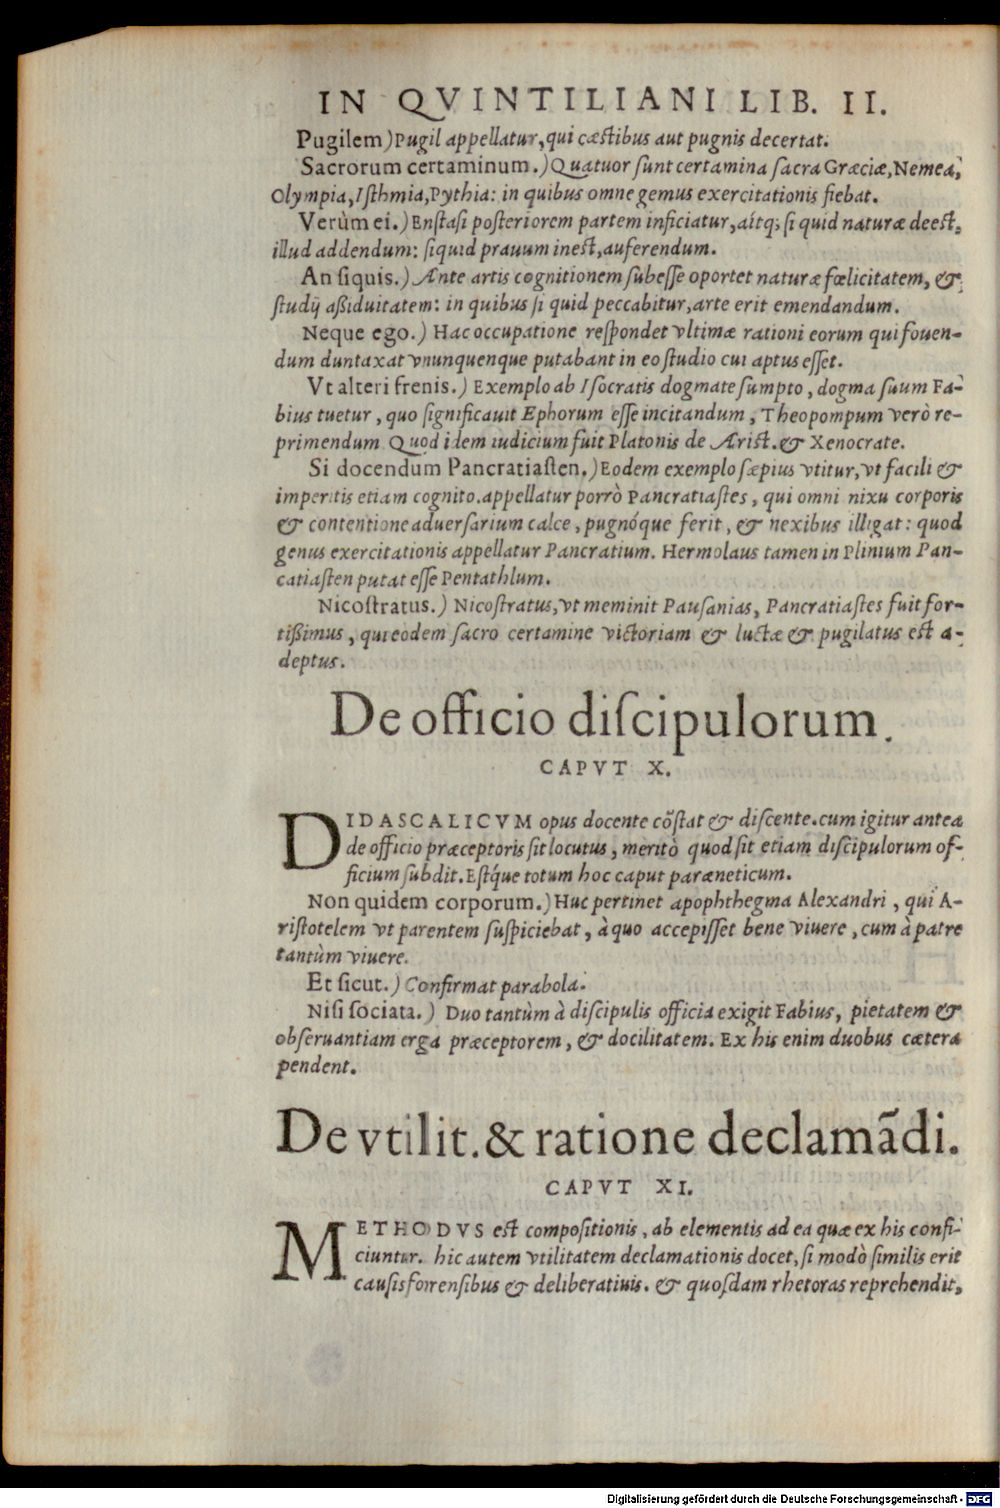 IN QVINTILIANI LIB. II.
Pugilem) Pugil appellatur, qui cæstibus aut pugnis decertat.
Sacrorum certaminum.) Quatuor sunt certamina sacra Græciæ, Nemea,
Olympia, Isthmia, Pythia: in quibus omne gemus exercitationis fiebat.
Verùm ei.) Enstasi posteriorem partem inficiatur, aitq; si quid naturæ deest,
illud addendum: siquid prauum inest, auferendum.
An siquis.) Ante artis cognitionem subesse oportet naturæ fœlicitatem, &
studij aßiduitatem: in quibus si quid peccabitur, arte erit emendandum.
Neque ego.) Hac occupatione respondet vltimæ rationi eorum qui fouen-
dum duntaxat vnunquenque putabant in eo studio cui aptus esset.
Vt alteri frenis.) Exemplo ab Isocratis dogmate sumpto, dogma suum Fa-
bius tuetur, quo significauit Ephorum esse incitandum, Theopompum verò re-
primendum Quod idem iudicium fuit Platonis de Arist. & Xenocrate.
Si docendum Pancratiasten.) Eodem exemplo sæpius vtitur, vt facili &
imperitis etiam cognito. appellatur porrò Pancratiastes, qui omni nixu corporis
& contentione aduersarium calce, pugnóque ferit, & nexibus illigat: quod
genus exercitationis appellatur Pancratium. Hermolaus tamen in Plinium Pan-
catiasten putat esse Pentathlum.
Nicostratus.) Nicostratus, vt meminit Pausanias, Pancratiastes fuit for-
tißimus, qui eodem sacro certamine victoriam & luctæ & pugilatus est a-
deptus.
De officio discipulorum.
CAPVT X.
DIDASCALICVM opus docente cõstat & discente. cum igitur antea
de officio præceptoris sit locutus, meritò quod sit etiam discipulorum of-
ficium subdit. Estq́ue totum hoc caput paræneticum.
Non quidem corporum.) Huc pertinet apophthegma Alexandri, qui A-
ristotelem vt parentem suspiciebat, à quo accepisset bene viuere, cum à patre
tantùm viuere.
Et sicut.) Confirmat parabola.
Nisi sociata.) Duo tantùm à discipulis officia exigit Fabius, pietatem &
obseruantiam erga præceptorem, & docilitatem. Ex his enim duobus cætera
pendent.
De vtilit. & ratione declamãdi.
CAPVT XI.
METHODVS est compositionis, ab elementis ad ea quæ ex his confi-
ciuntur. hic autem vtilitatem declamationis docet, si modò similis erit
causis forrensibus & deliberatiuis. & quosdam rhetoras reprehendit,
Digitalisierung gefördert durch die Deutsche Forschungsgemeinschaft - DFG